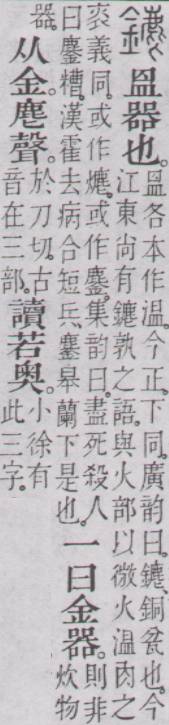 𥁕器也。𥁕各本作溫。今正。下同。廣韵曰。䥝、銅瓫也。今江東尚有䥝孰之語。與火部以微火溫肉之
義同。或作爊。或作鏖。集韵曰。盡死殺人曰鏖糟。漢霍去病合短兵、鏖皋蘭下是也。一曰金器。則非炊物
器。从金麀聲。於刀切。古音在三部。讀若奧。小徐有此三字。